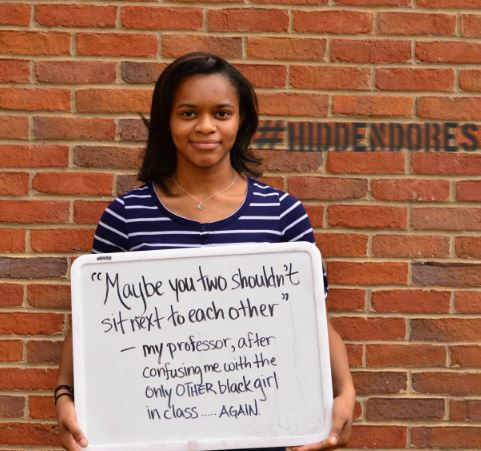 #HIDDENDORES
"Maybe you two shouldn't
sit next to each other"
- my professor, after
confusing me with the
only OTHER black girl
in class..... AGAIN.